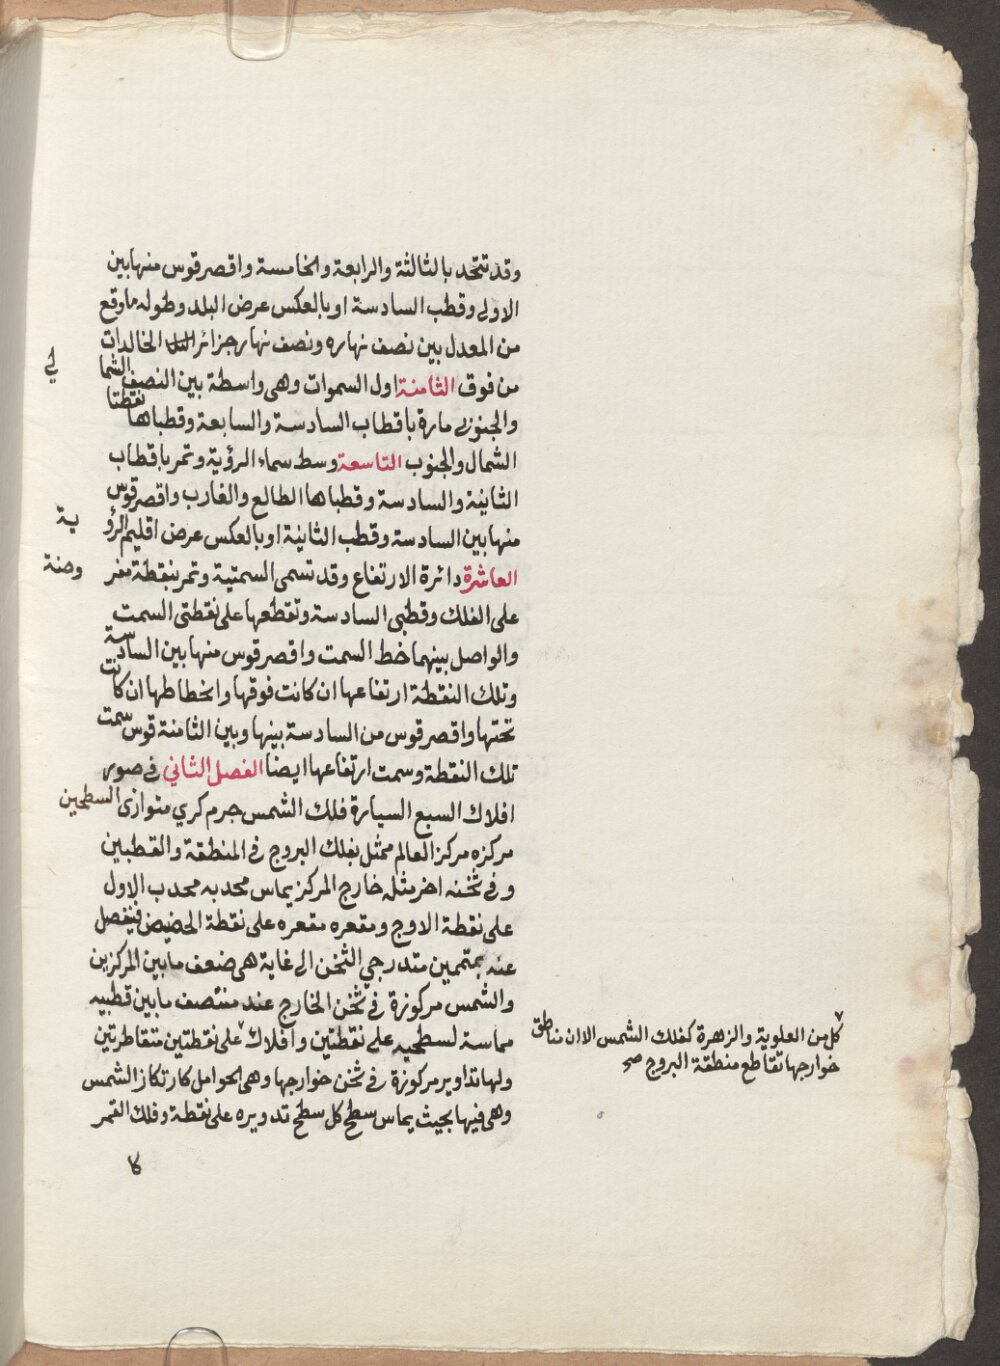 وقد تتحد بالثالثة والرابعة والخامسة واقصر قوس منها بين
الاولى وقطب السادسة او بالعكس عرض البلد وطوله ما وقع
من المعدل بين نصف نهاره ونصف نهار جزائر الخالدات
من فوق الثامنة اول السموات وهى واسطة بين النصف الشما
لي
والجنوبى مارة باقطاب السادسة والسابعة وقطباها نقطتا
الشمال والجنوب التاسعة وسط سماء الرؤية وتمر باقطاب
الثانية والسادسة وقطباها الطالع والغارب واقصر قوس
منها بين السادسة وقطب الثانية او بالعكس عرض اقليم الرؤ
ية
العاشرة دائرة الارتفاع وقد تسمى السمتية وتمر بنقطة مفر
وضة
على الفلك وقطبى السادسة وتقطعها على نقطتى السمت
والواصل بينهما خط السمت واقصر قوس منها بين السادسة
وتلك النقطة ارتفاعها ان كانت فوقها وانحطاطها ان كانت
تحتها واقصر قوس من السادسة بينها وبين الثامنة قوس سمت
تلك النقطة وسمت ارتفاعها ايضا الفصل الثاني فى صور
افلاك السبع السيارة فلك الشمس جرم كري متوازى السطحين
مركزه مركز العالم ممثل بفلك البروج فى المنطقة والقطبين
وفى ثخنه اخر مثله خارج المركز يماس محدبه محدب الاول
على نقطة الاوج ومقعره مقعره على نقطة الحضيض فينفصل
عنه بمتممين متدرجي الثخن الى غاية هى ضعف ما بين المركزين
والشمس مركوزة فى ثخن الخارج عند منتصف ما بين قطبيه
مماسة لسطحيه على نقطتين وافلاك على نقطتين متقاطرتين
ولها تداوير مركوزة فى ثخن خوارجها وهى الحوامل كارتكاز الشمس
وهى فيها بحيث يماس سطح كل سطح تدويره على نقطة وفلك القمر
كا
كل من العلوية والزهرة كفلك الشمس الا ان مناطق
خوارجها تقاطع منطقة البروج صح